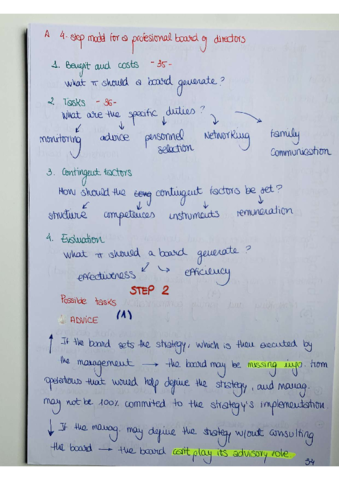 A 4-step model for a professional board of directors
1. Benefit and costs -35-
What π should a board generate?
2. Tasks -36-
What are the specific duties?
monitoring advice personnel selection Networking Family Communication
3. Contingent factors
How should the contingent factors be set?
structure competences instruments remuneration
4. Evaluation
What π should a board generate?
effectiveness efficiency
STEP 2
Possible tasks
ADVICE (1)
↑ If the board sets the strategy, which is then executed by
the management → the board may be missing info. from
operations that would help define the strategy, and manag.
may not be 100% committed to the strategy's implementation.
↓ If the manag. may define the strategy w/out consulting
the board → the board can't play its advisory role
34